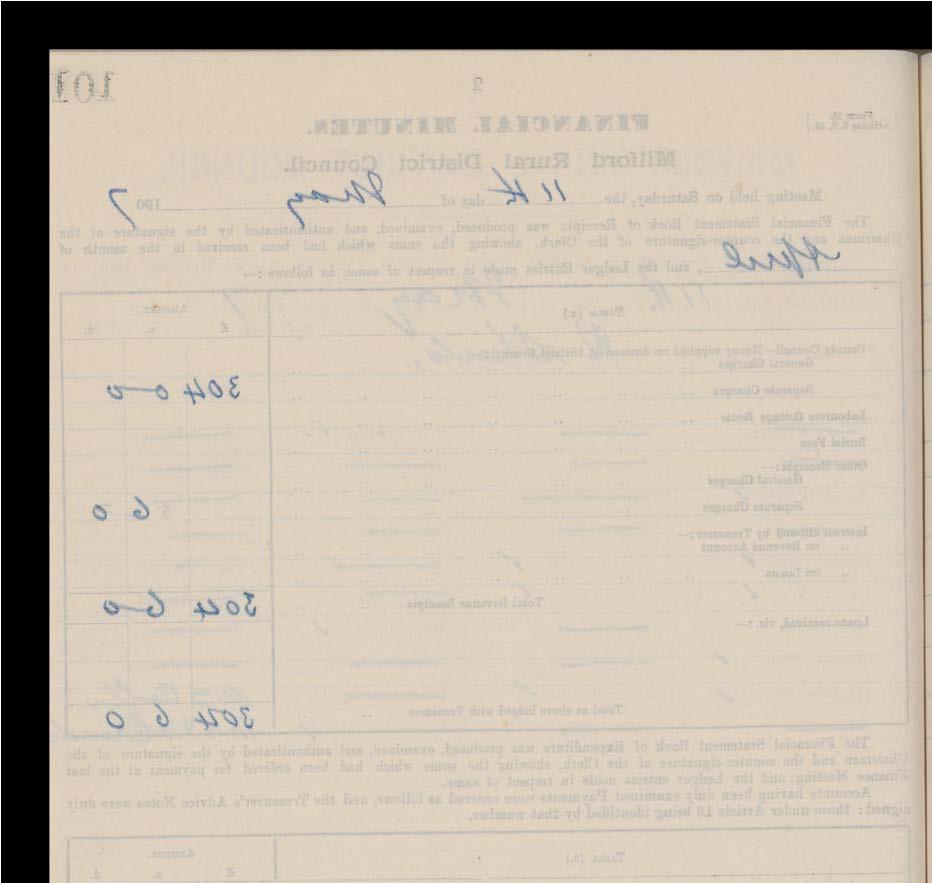 101
2
Form M.
FINANCIAL MINUTES.
Milford Rural District Council.
Meeting held on Saturday, the 11th day of May 1907
The Financial Statement Book of Receipts was produced, examined, and authenticated by the signature of the
Chairman and the counter-signature of the Clerk, showing the sums which had been received in the month of
April, and the Ledger Entries made in respect of same, as follows:—
Amount.
£ s. d.
County Council—Money supplied on demand of District Council:—
General Charges
Separate Charges 304 0 0
Labourers Cottage Rents
Burial Fees
Other Receipts:—
General Charges
Separate Charges 6 0
Interest allowed by Treasurer:—
„ on Revenue Account
„ on Loans
Total Revenue Receipts 304 6 0
Loans received, viz.:—
Total as above lodged with Treasurer 304 6 0
The Financial Statement Book of Expenditure was produced, examined, and authenticated by the signature of the
Chairman and the counter-signature of the Clerk, showing the sums which had been ordered for payment at the last
Finance Meeting, and the Ledger entries made in respect of same.
Accounts having been duly examined Payments were ordered as follows, and the Treasurer's Advice Notes were duly
signed: those under Article 10 being identified by that number.
Amount.
£ d.